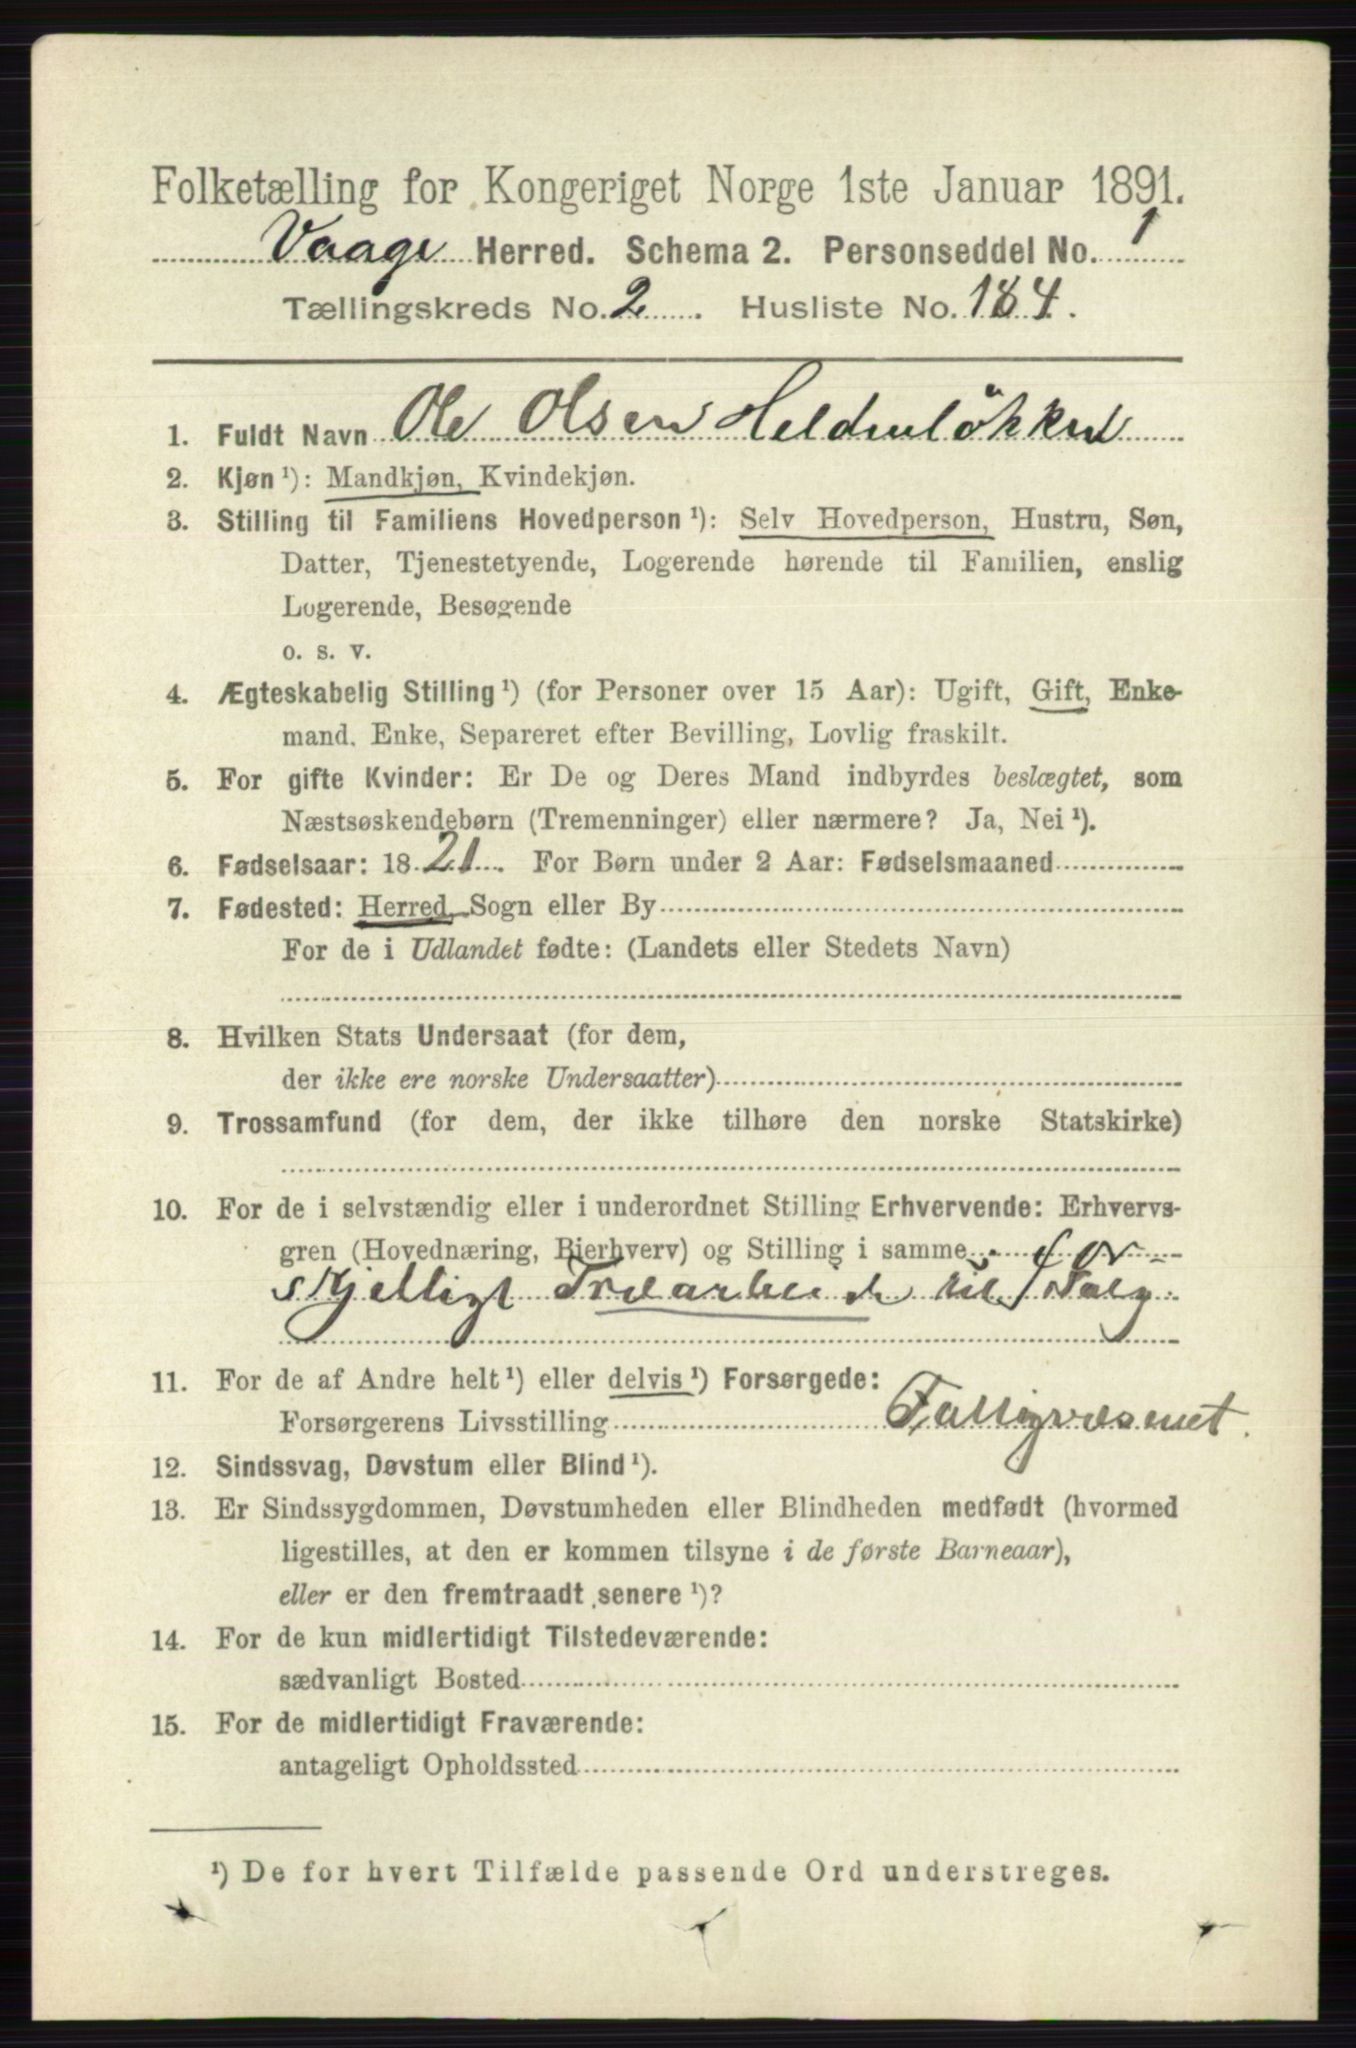 Folketælling for Kongeriget Norge 1ste Januar 1891.
Vaage Herred. Schema 2. Personseddel No. 1
Tællingskreds No. 2. Husliste No. 184.
1. Fuldt Navn Ole Olsen Heldenløkken
2. Kjøn ¹): Mandkjøn, Kvindekjøn.
3. Stilling til Familiens Hovedperson ¹): Selv Hovedperson, Hustru, Søn,
Datter, Tjenestetyende, Logerende hørende til Familien, enslig
Logerende, Besøgende
o. s. v.
4. Ægteskabelig Stilling ¹) (for Personer over 15 Aar): Ugift, Gift, Enke-
mand, Enke, Separeret efter Bevilling, Lovlig fraskilt.
5. For gifte Kvinder: Er De og Deres Mand indbyrdes beslægtet, som
Næstsøskendebørn (Tremenninger) eller nærmere? Ja, Nei ¹).
6. Fødselsaar: 1821. For Børn under 2 Aar: Fødselsmaaned
7. Fødested: Herred, Sogn eller By
For de i Udlandet fødte: (Landets eller Stedets Navn)
8. Hvilken Stats Undersaat (for dem,
der ikke ere norske Undersaatter)
9. Trossamfund (for dem, der ikke tilhøre den norske Statskirke)
10. For de i selvstændig eller i underordnet Stilling Erhvervende: Erhvervs-
gren (Hovednæring, Bierhverv) og Stilling i samme for-
skjelligt Træarbeide til Salg.
11. For de af Andre helt ¹) eller delvis ¹) Forsørgede:
Forsørgerens Livsstilling Fattigvæsenet.
12. Sindssvag, Døvstum eller Blind ¹).
13. Er Sindssygdommen, Døvstumheden eller Blindheden medfødt (hvormed
ligestilles, at den er kommen tilsyne i de første Barneaar),
eller er den fremtraadt senere ¹)?
14. For de kun midlertidigt Tilstedeværende:
sædvanligt Bosted
15. For de midlertidigt Fraværende:
antageligt Opholdssted
¹) De for hvert Tilfælde passende Ord understreges.